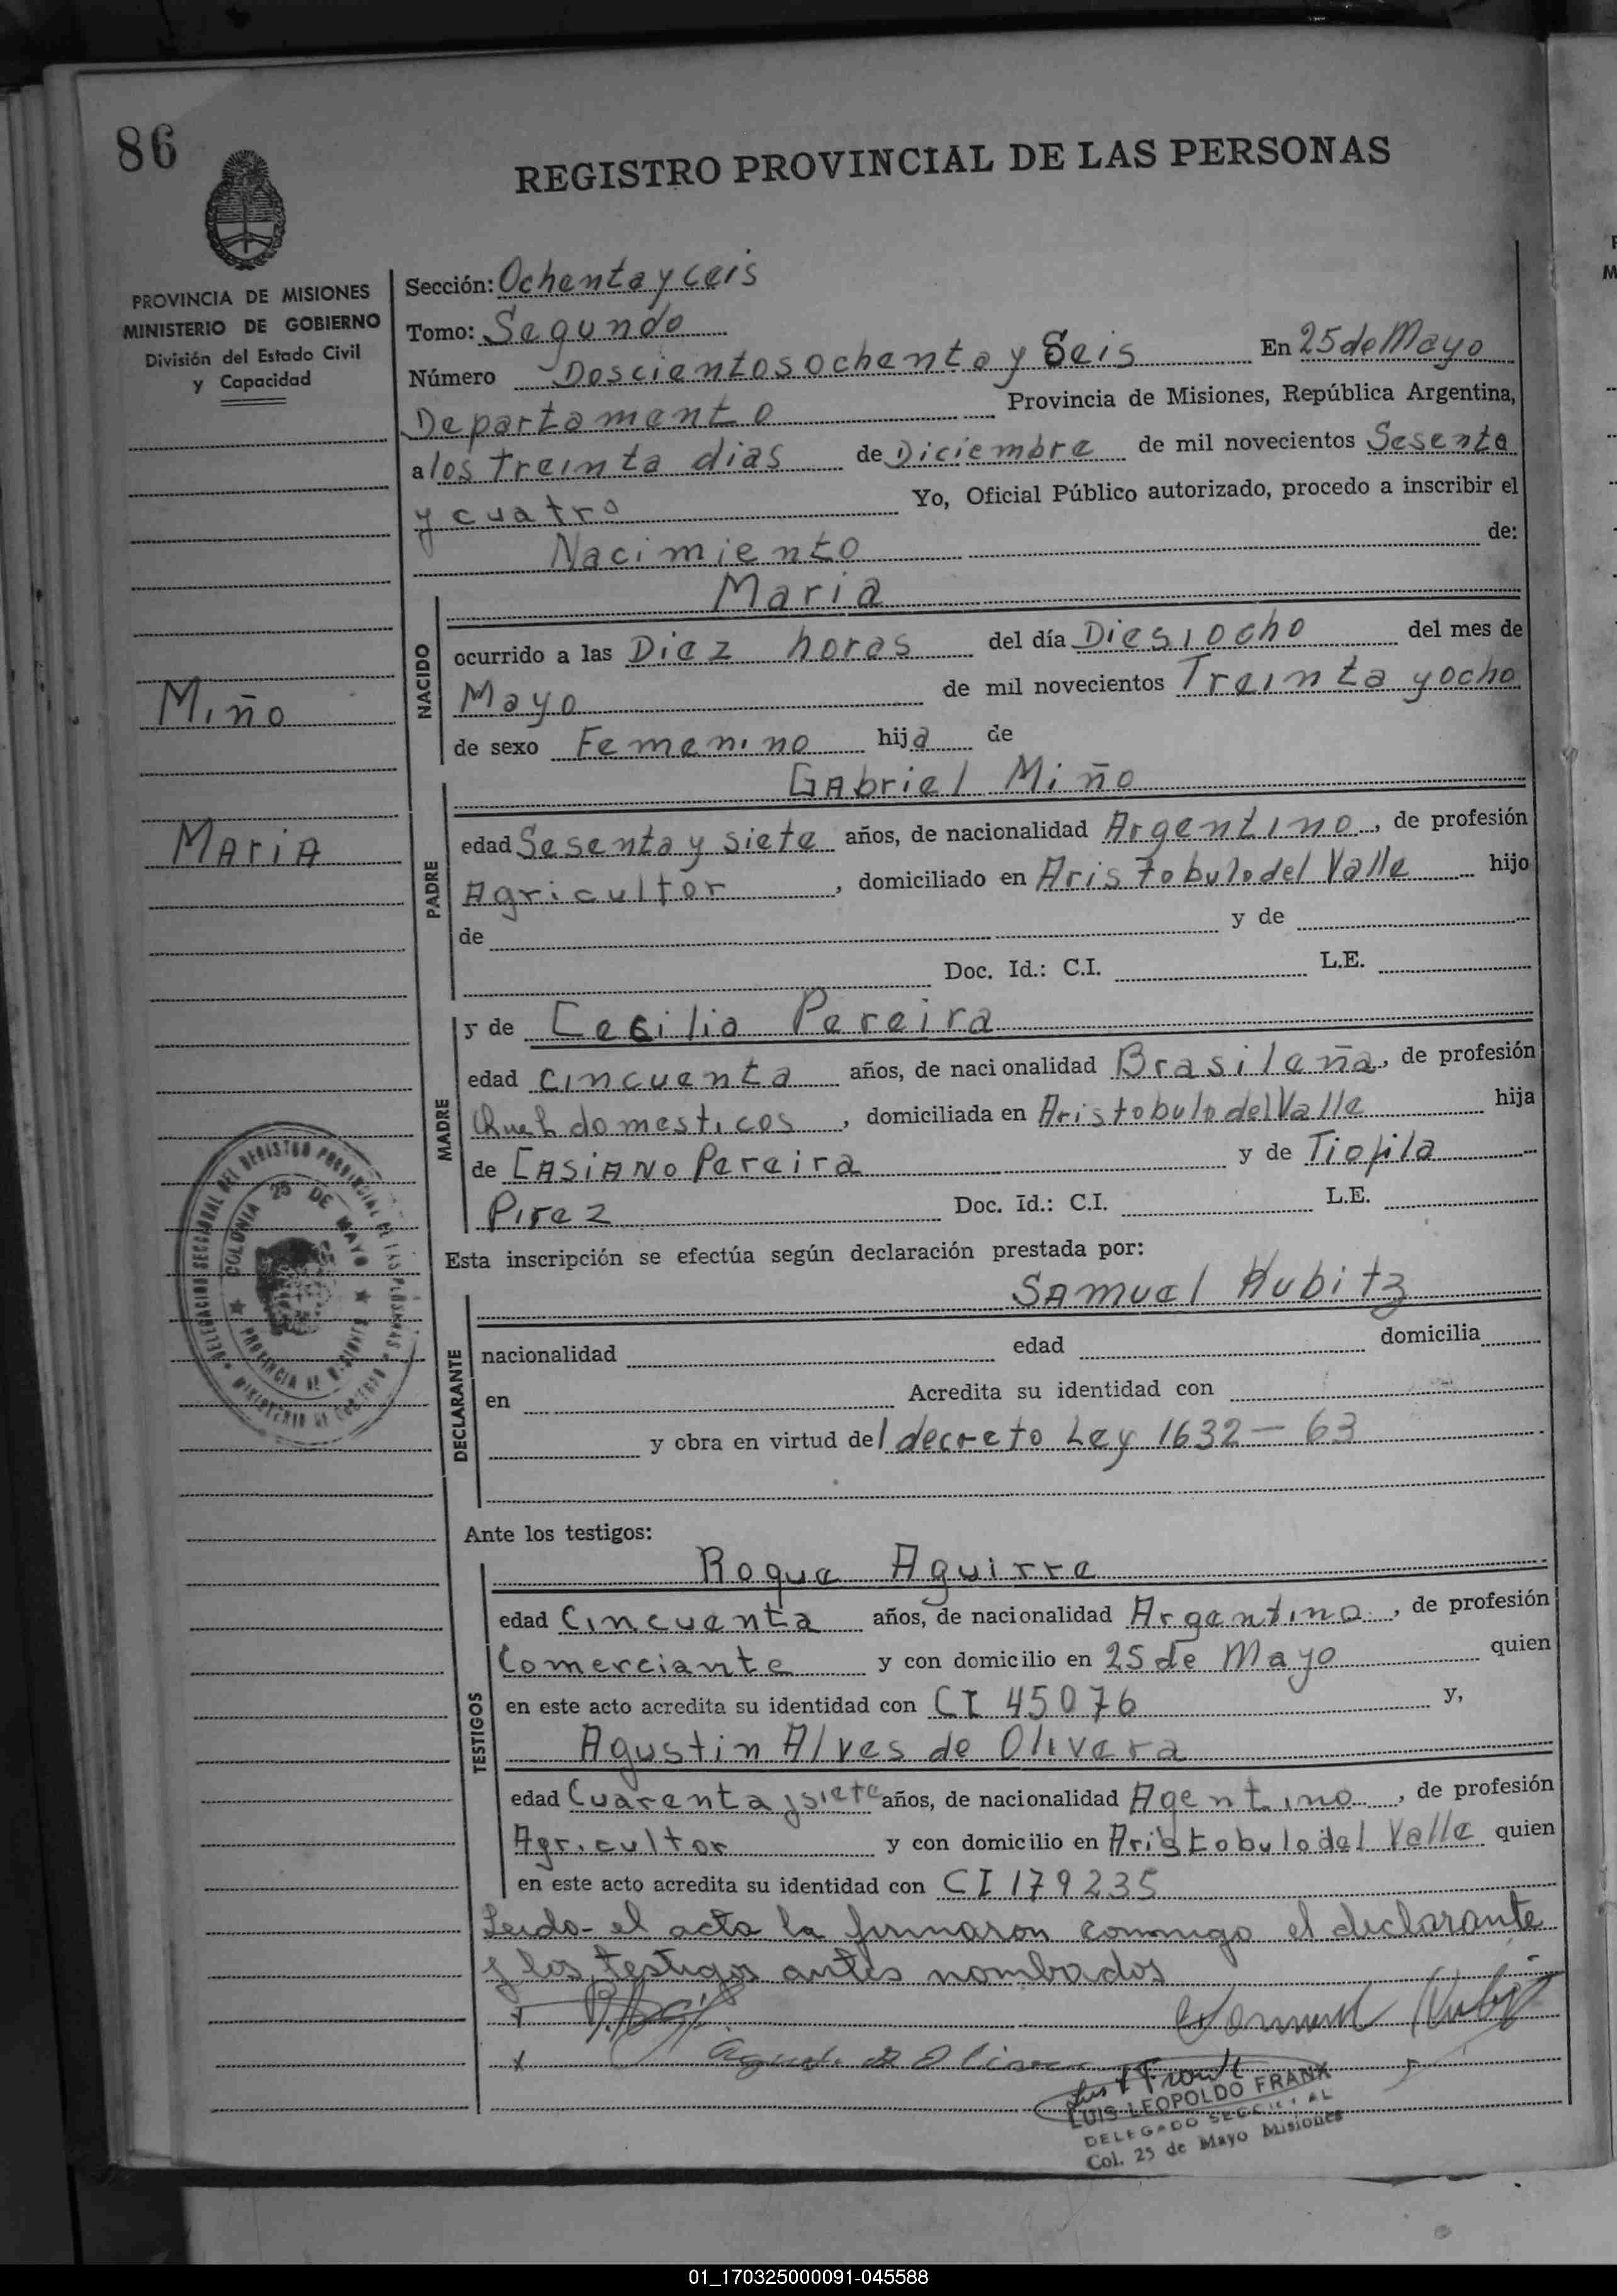 86
REGISTRO PROVINCIAL DE LAS PERSONAS
PROVINCIA DE MISIONES
MINISTERIO DE GOBIERNO
División del Estado Civil
y Capacidad
Miño
MAriA
Sección: Ochenta y ceis
Tomo: Segundo
Número Doscientos ochenta y Seis En 25 de Mayo
Departamento Provincia de Misiones, República Argentina,
a los treinta dias de Diciembre de mil novecientos Sesenta
y cuatro Yo, Oficial Público autorizado, procedo a inscribir el
Nacimiento de:
NACIDO
Maria
ocurrido a las Diez horas del día Diesiocho del mes de
Mayo de mil novecientos Treinta y ocho
de sexo Femenino hija de
PADRE
GAbriel Miño
edad Sesenta y siete años, de nacionalidad Argentino, de profesión
Agricultor, domiciliado en Aristobulo del Valle hijo
de y de
Doc. Id.: C.I. L.E.
MADRE
y de Cecilia Pereira
edad cincuenta años, de nacionalidad Brasileña, de profesión
domesticos, domiciliada en Aristobulo del Valle hija
de CASiANO Pereira y de Tiofila
Pirez Doc. Id.: C.I. L.E.
Esta inscripción se efectúa según declaración prestada por:
DECLARANTE
SAmuel Hubitz
nacionalidad edad domicilia
en Acredita su identidad con
y obra en virtud del decreto Ley 1632 — 63
Ante los testigos:
TESTIGOS
Roque Aguirre
edad Cincuenta años, de nacionalidad Argentino, de profesión
Comerciante y con domicilio en 25 de Mayo quien
en este acto acredita su identidad con CI 45076 y,
Agustin Alves de Olivera
edad Cuarenta y siete años, de nacionalidad Agentino, de profesión
Agricultor y con domicilio en Aristobulo del Valle quien
en este acto acredita su identidad con CI 179235
Leido el acta la firmaron conmigo el declarante
y los testigos antes nombrados
LUIS LEOPOLDO FRANK
DELEGADO SECCIONAL
Col. 25 de Mayo Misiones
DELEGACION SECCIONAL DEL REGISTRO PROVINCIAL DE LAS PERSONAS
COLONIA 25 DE MAYO
PROVINCIA DE MISIONES
MINISTERIO DE GOBIERNO
01_170325000091-045588